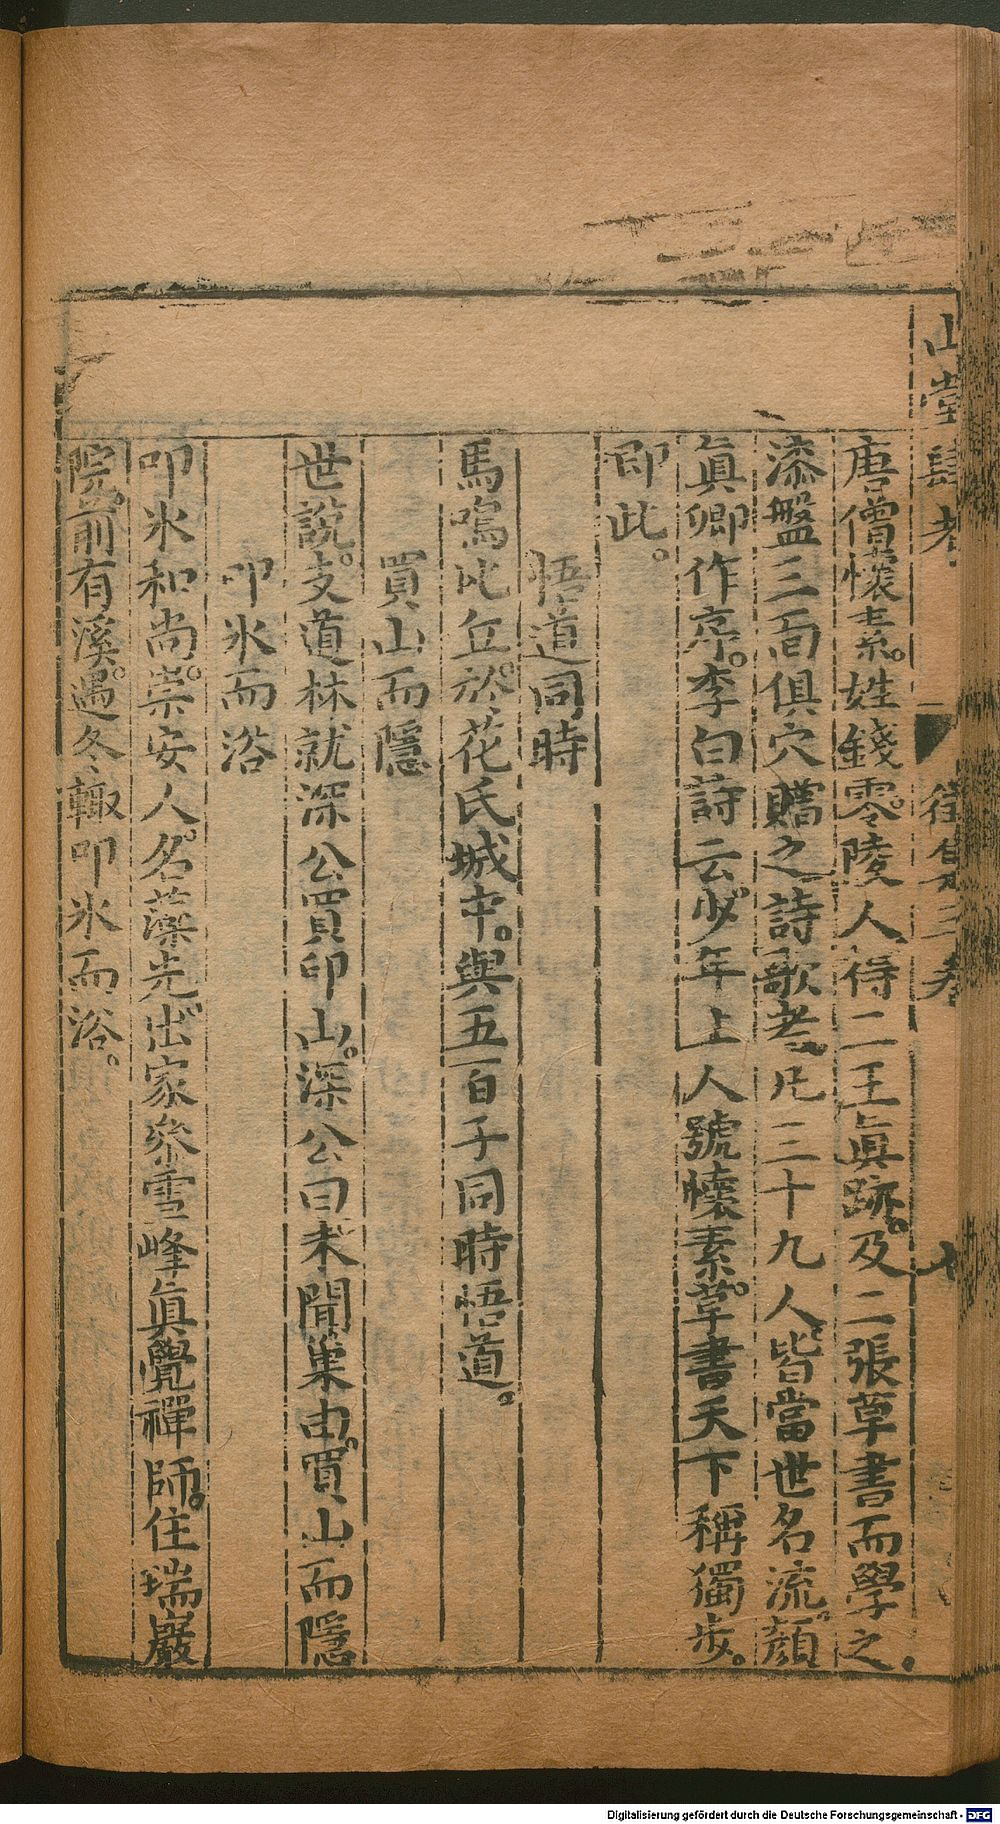 山堂肆考
徵集三卷
唐僧懷素。姓錢。零陵人。得二王眞跡。及二張草書而學之。
漆盤三面俱穴。贈之詩歌者。凡三十九人。皆當世名流。顔
眞卿作序。李白詩云。少年上人號懷素。草書天下稱獨步。
卽此。
悟道同時
馬鳴比丘。於花氏城中。與五百子同時悟道。
買山而隱
世說。支道林就深公買印山。深公曰。未聞巢由。買山而隱
叩氷而浴
叩氷和尚。崇安人。名藻光。出家叅雪峰眞覺禪師。住瑞巖
院。前有溪。遇冬輙叩氷而浴。
Digitalisierung gefördert durch die Deutsche Forschungsgemeinschaft - DFG